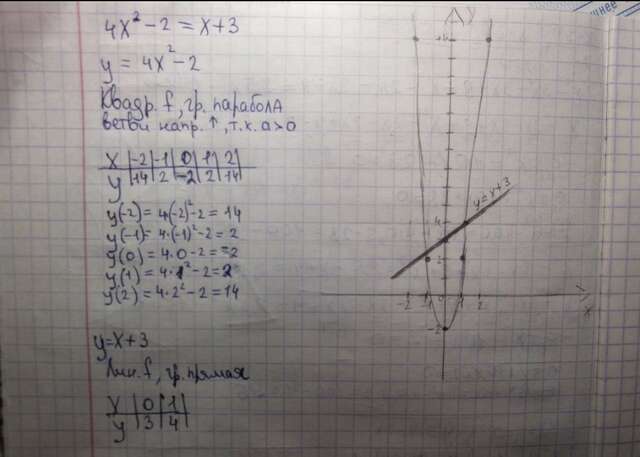 4x² - 2 = x + 3
y = 4x² - 2
Квадр. f, гр. парабола
ветви напр. ↑, т.к. a>0
x | -2 | -1 | 0 | 1 | 2
y | 14 | 2 | -2 | 2 | 14
y(-2) = 4(-2)² - 2 = 14
y(-1) = 4·(-1)² - 2 = 2
y(0) = 4·0 - 2 = -2
y(1) = 4·1² - 2 = 2
y(2) = 4·2² - 2 = 14
y = x + 3
Лин. f, гр. прямая
x | 0 | 1
y | 3 | 4
y
y = x + 3
4
2
0
-2 -1 1 2
x
-2